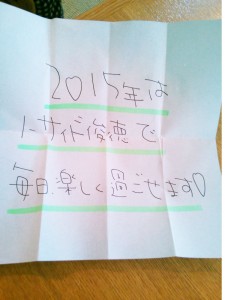 2015年は
ノーサイド俊徳で
毎日楽しく過ごせます♡